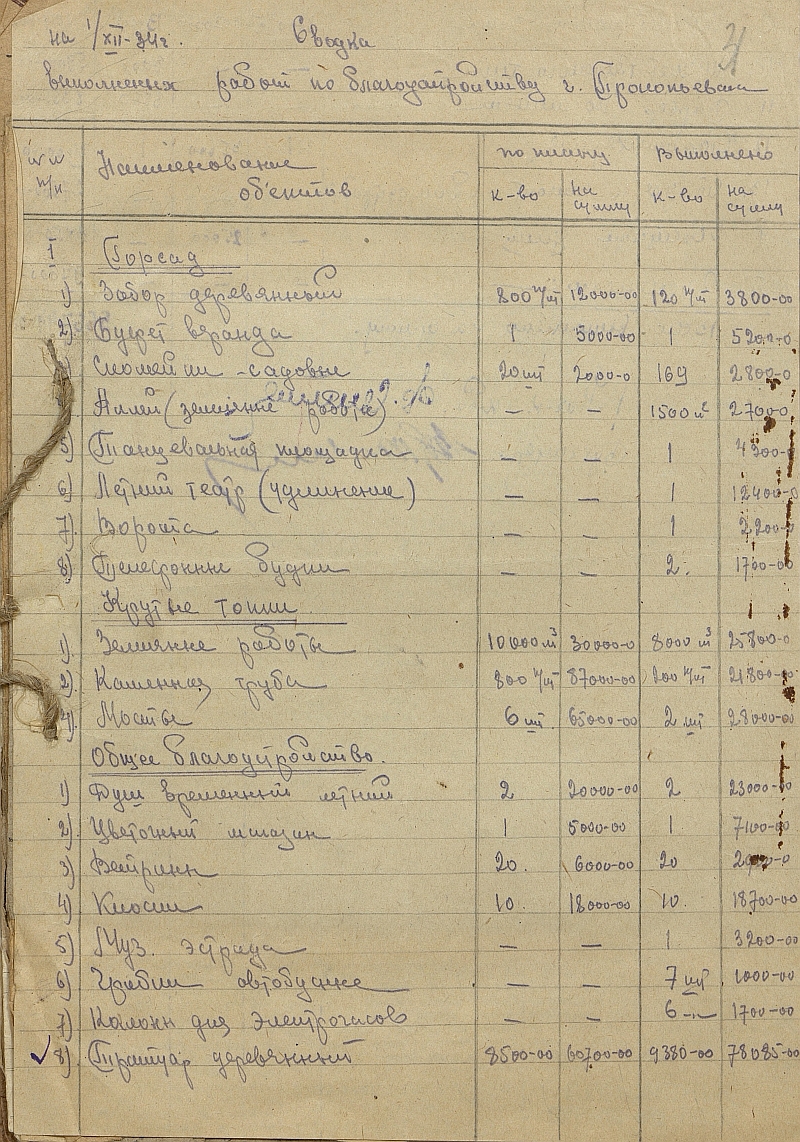 на 1/XII-34г. Сводка 31
выполнения работ по благоустройству г. Прокопьевска
№ № п/п Наименование об'ектов по плану Выполнено
к-во на сумму к-во на сумму
I Горсад
1) Забор деревянный 800 п/м 12000-00 120 п/м 3800-00
2) Буфет веранда 1 5000-00 1 5200-0
Скамейки-садовые 20 шт 2000-0 169 2800-0
Аллеи (земляные работы) — — 1500 м² 2700-0
5) Танцевальная площадка — — 1 4300-0
6) Летний театр (удлинение) — — 1 12400-0
7) Ворота — — 1 2200-0
8) Телефонные будки — — 2. 1700-00
Крутые топки
1) Земляные работы 10000 м³ 30000-0 8000 м³ 25800-0
2) Каменная труба 800 п/м 87000-00 200 п/м 21800-00
4) Мосты 6 шт. 65000-00 2 шт 28000-00
Общее благоустройство.
1) Душ временный летний 2 20000-00 2 23000-00
2) Цветочный магазин 1 5000-00 1 7100-00
3) Витрины 20. 6000-00 20
4) Киоски 10. 18000-00 10. 18700-00
5) Муз. эстрада — — 1 3200-00
6) автобусные — — 7 шт 1000-00
7) Колонн для электрочасов — — 6 -"- 1700-00
8) Тратуар деревянный 8500-00 60700-00 9380-00 78085-00